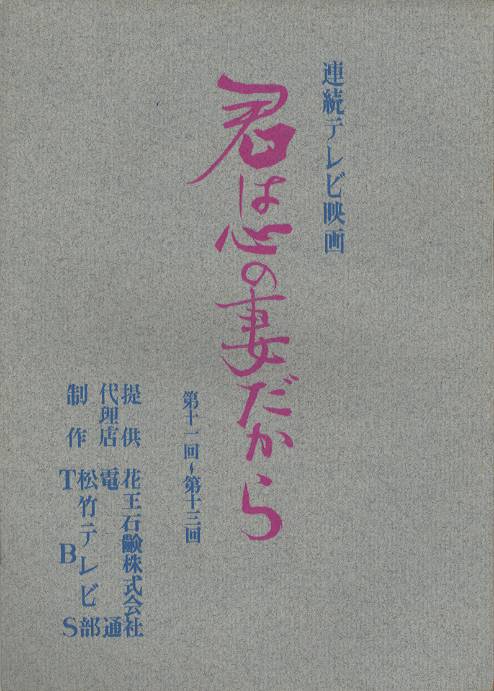 連続テレビ映画
君は心の妻だから
第十一回~第十三回
提供 花王石鹸株式会社
代理店 電通
制作 松竹テレビ部
TBS